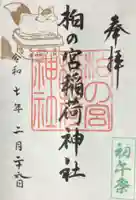 奉拝
柏の宮稲荷神社
柏の宮
神社
令和七年二月二十八日
初午祭